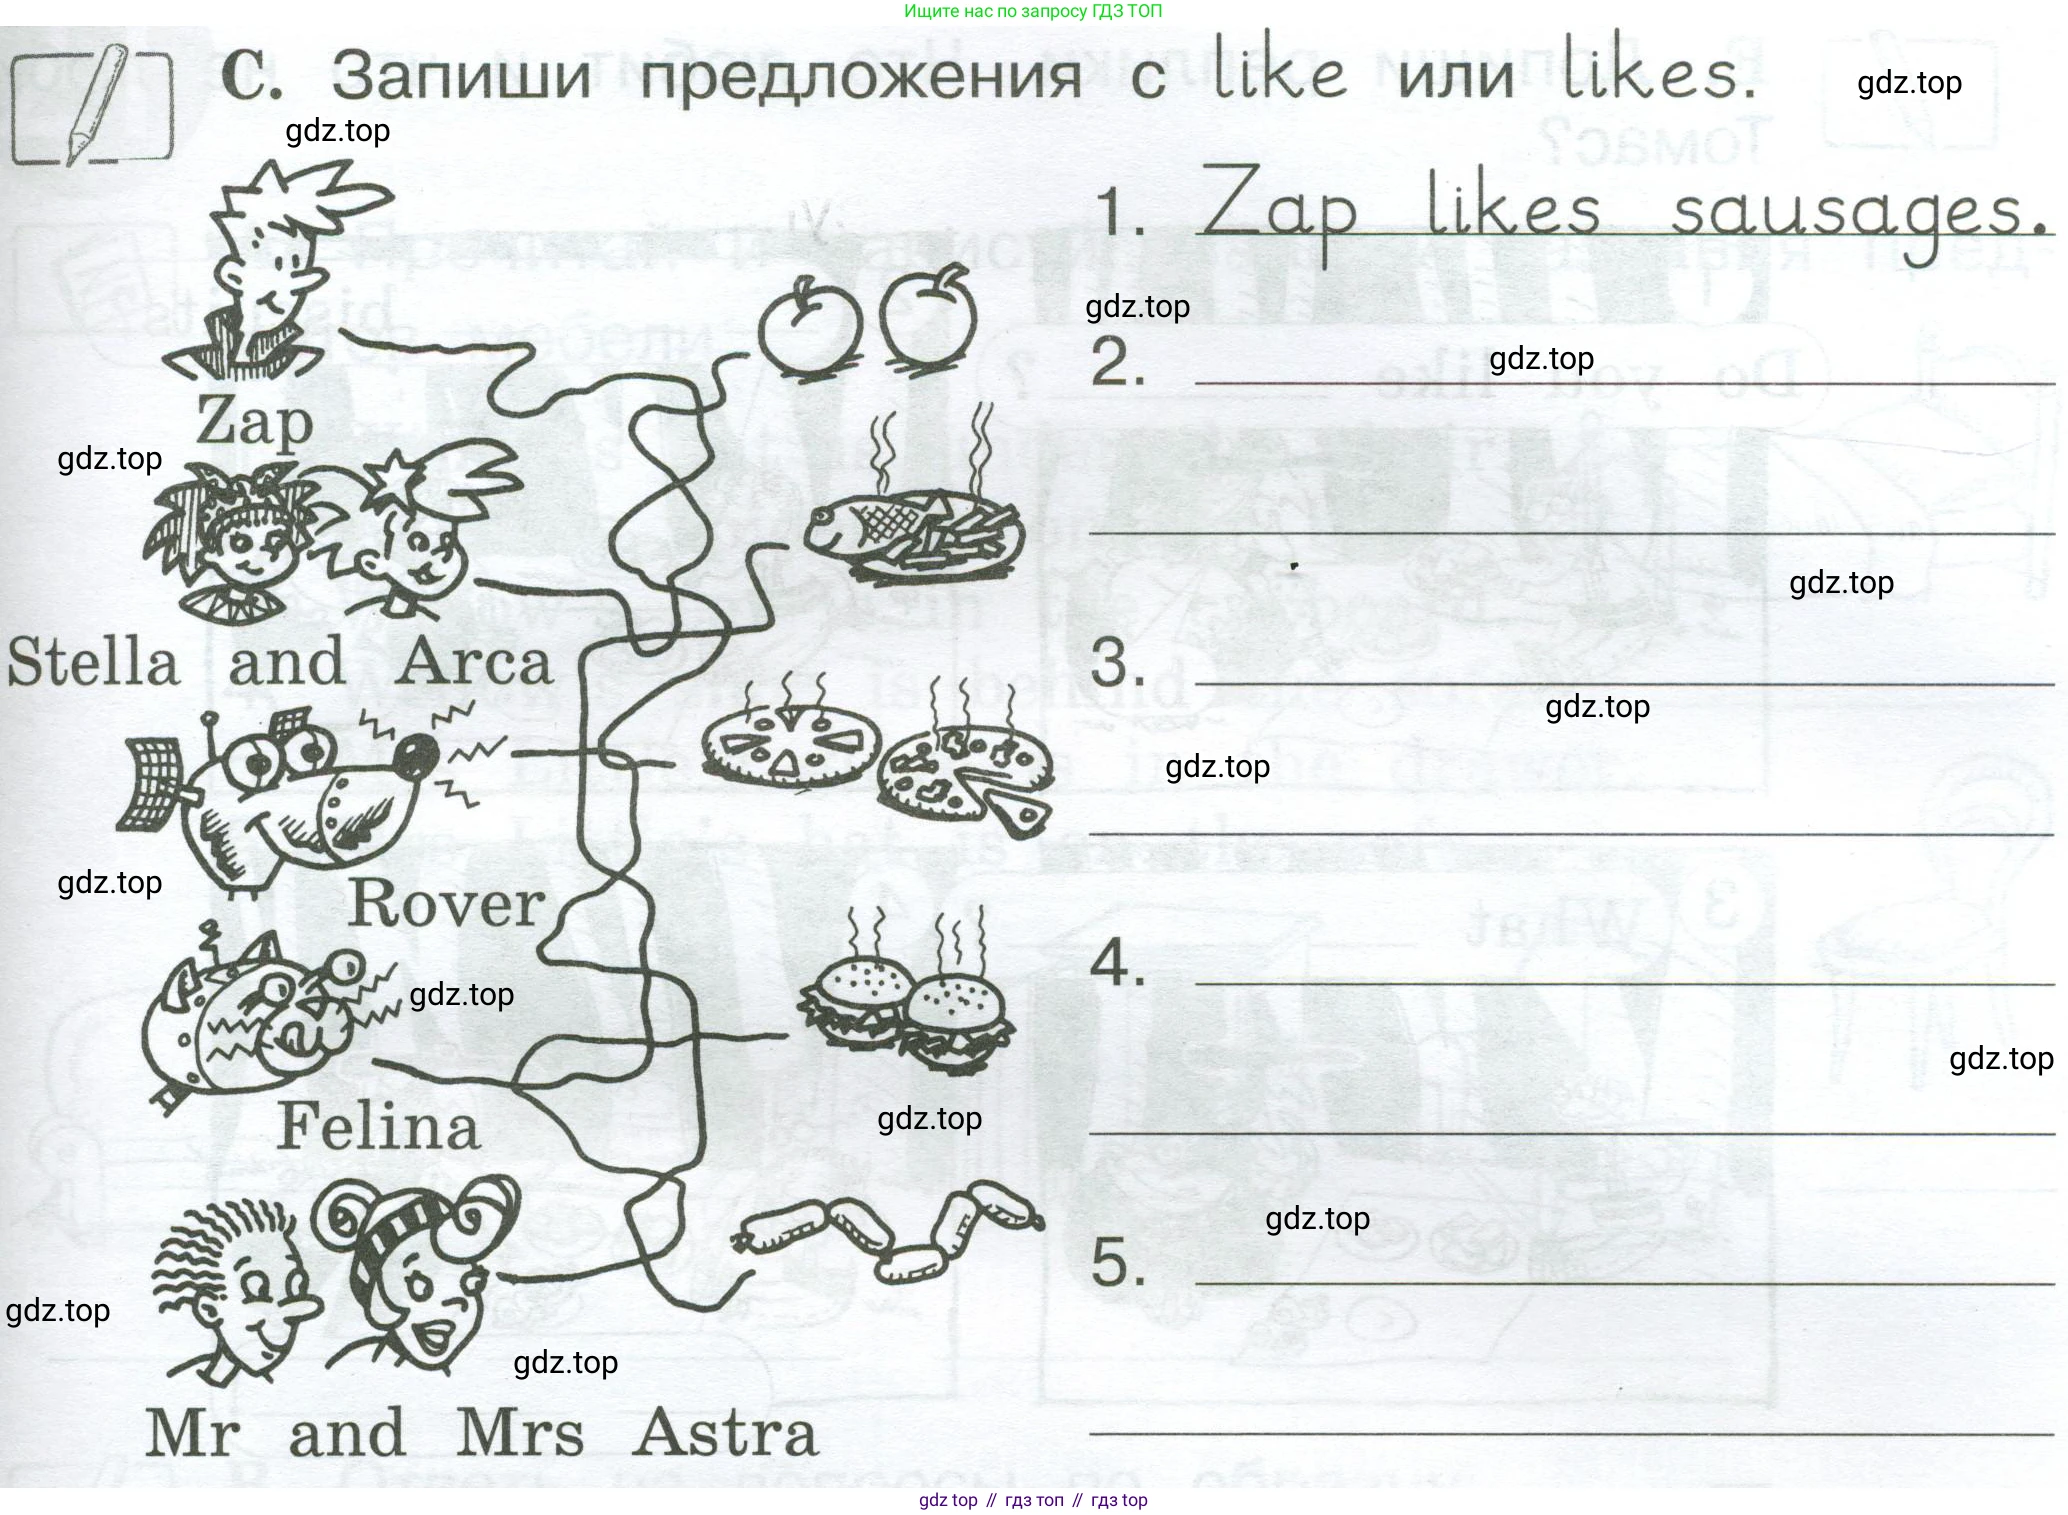 Ищите нас по запросу ГДЗ ТОП
C. Запиши предложения с like или likes.
gdz.top
gdz.top
1. Zap likes sausages.
gdz.top
2.
gdz.top
Zap
gdz.top
gdz.top
Stella and Arca
3.
gdz.top
gdz.top
gdz.top
Rover
4.
gdz.top
gdz.top
gdz.top
Felina
gdz.top
5.
gdz.top
gdz.top
Mr and Mrs Astra
gdz top // гдз топ // гдз top